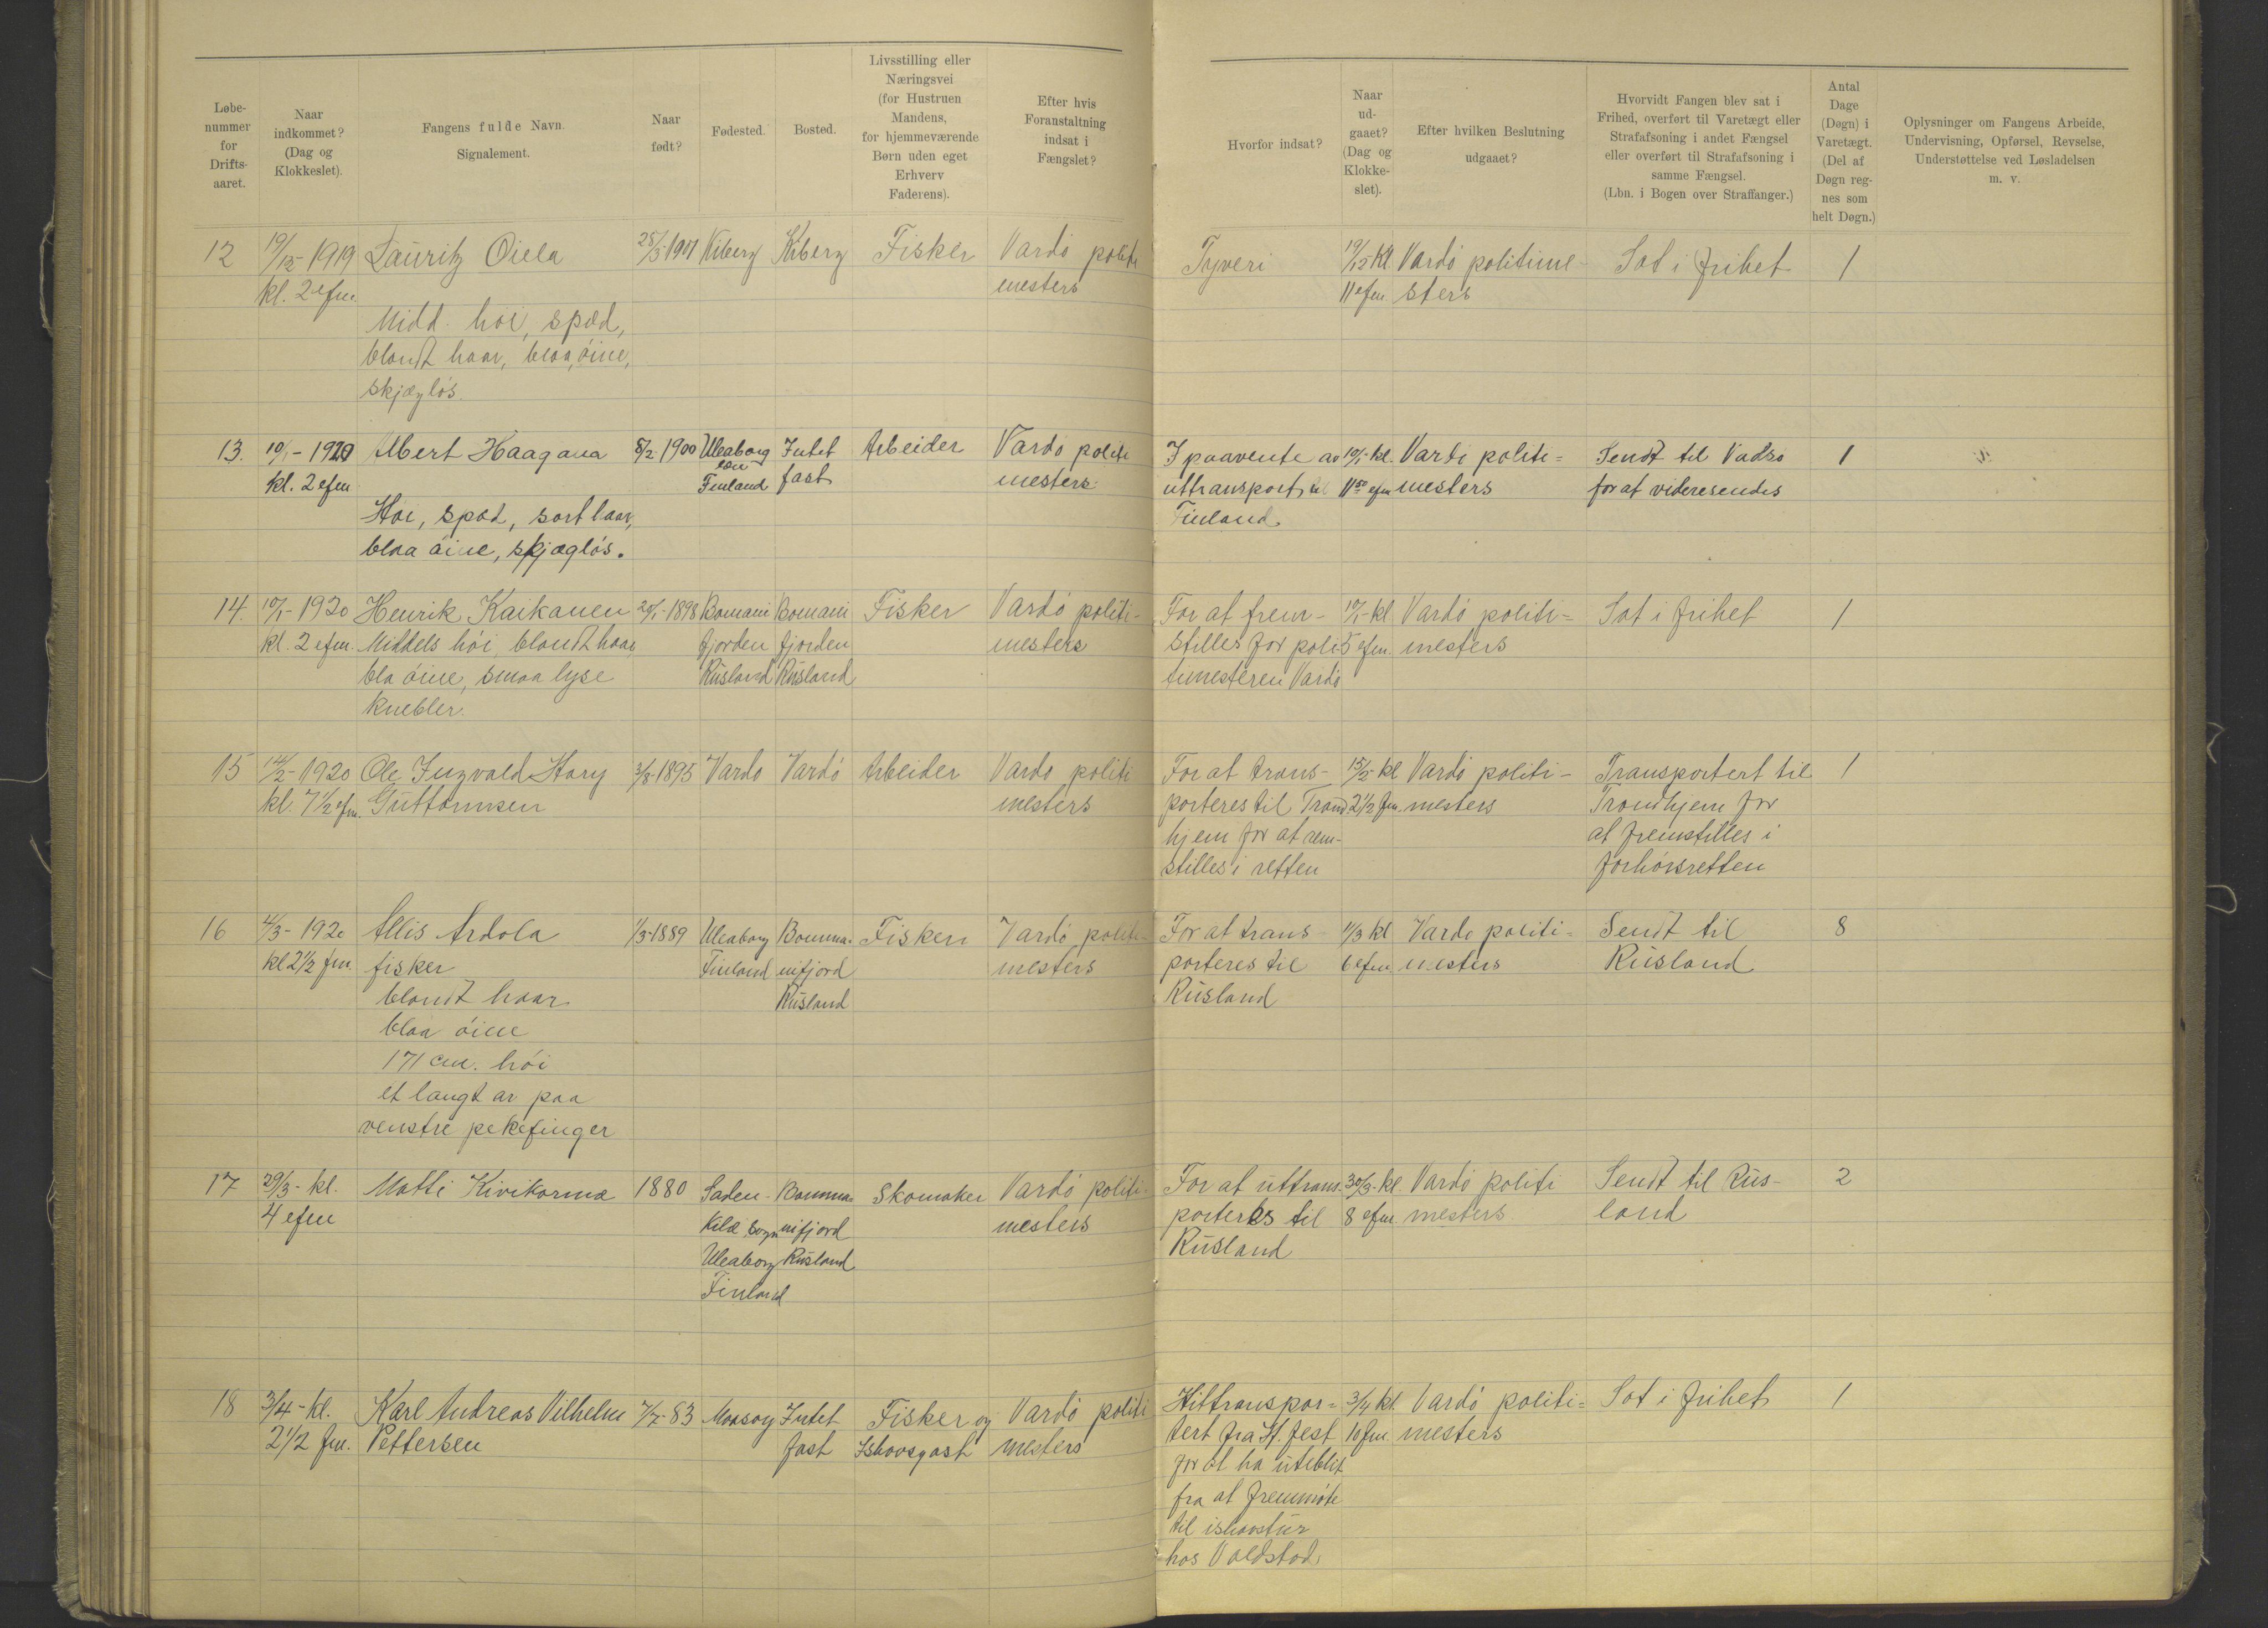 Løbe-
nummer
for
Drifts-
aaret.
Naar
indkommet?
(Dag og
Klokkeslet).
Fangens fulde Navn.
Signalement.
Naar
født?
Fødested.
Bosted.
Livsstilling eller
Næringsvei
(for Hustruen
Mandens,
for hjemmeværende
Børn uden eget
Erhverv
Faderens).
Efter hvis
Foranstaltning
indsat i
Fængslet?
Hvorfor indsat?
Naar
ud-
gaaet?
(Dag og
Klokke-
slet).
Efter hvilken Beslutning
udgaaet?
Hvorvidt Fangen blev sat i
Frihed, overført til Varetægt eller
Strafafsoning i andet Fængsel
eller overført til Strafafsoning i
samme Fængsel.
(Lbn. i Bogen over Straffanger.)
Antal
Dage
(Døgn) i
Varetægt.
(Del af
Døgn reg-
nes som
helt Døgn.)
Oplysninger om Fangens Arbeide,
Undervisning, Opførsel, Revselse,
Understøttelse ved Løsladelsen
m. v.
12
19/12-1919
kl. 2 efm.
Lauritz Oiela
Midd. høi, spæd,
blondt haar, blaa øine,
skjægløs.
Kiberg
Kiberg
Fisker
Vardö politi
mesters
Tyveri
19/12 kl
11 efm
Vardö politime-
sters
Sat i frihet
1
13.
10/1-1920
kl. 2 efm
Albert Haagana
Høi, spæd, sort haar,
blaa øine, skjægløs.
5/2-1900
Uleaborg
len
Finland
Intet
fast
Arbeider
Vardö politi
mesters.
I paavente av
uttransport til
Finland
10/1- kl.
11 50 efm
Vardö politi=
mesters
Sendt til Vadsö
for at videresendes
1
14.
10/1-1920
kl. 2 efm.
Henrik Kaikanen
Middels høi, blondt haar
bla øine, smaa lyse
knebler.
20/1-1898
Bomani
fjorden
Rusland
Bomani
fjorden
Rusland
Fisker
Vardö politi-
mesters
For at frem-
stilles for poli-
timesteren Vardö
10/1- kl
5 efm.
Vardö politi=
mesters
Sat i frihet
1
15
14/2-1920
kl. 7 1/2 efm.
Ole Ingvald Hary
Guttormsen
3/8-1895
Vardö
Vardö
Arbeider
Vardö politi
mesters
For at trans-
porteres til Trond
hjem for at rem-
stilles i retten
15/2- kl
2 1/2 fm.
Vardö politi-
mesters
Transportert til
Trondhjem for
at fremstilles i
forhörsretten
1
16
4/3-1920
kl 2 1/2 fm
Allis Ardola
fisker
blondt haar
blaa øine
171 cm. høi
et langt ar paa
venstre pekefinger
1/3-1889
Uleaborg
Finland
Bomma-
nifjord
Rusland
Fisker
Vardö politi-
mesters
For at trans-
porteres til
Rusland
11/3 kl
6 efm
Vardö politi=
mesters
Sendt til
Rusland
8
17
29/3- kl.
4 efm
Matti Kivikorma
1880
Saden-
kilæ sogn
Uleaborg
Finland
Bomma-
nifjord
Rusland
Skomaker
Vardö politi-
mesters
For at uttrans-
porteres til
Rusland
30/3- kl.
8 efm
Vardö politi
mesters
Sendt til Rus-
land
2
18
3/4- kl.
2 1/2 fm.
Karl Andreas Vilhelm
Pettersen
7/7-83
Maasøy
Intet
fast
Fisker og
Ishavsgast
Vardö politi
mesters
Hittranspor=
tert fra H.fest
for at ha uteblit
fra at fremmöte
til ishavstur
hos Voldstad.
3/4 kl.
10 fm.
Vardö politi=
mesters
Sat i frihet
1